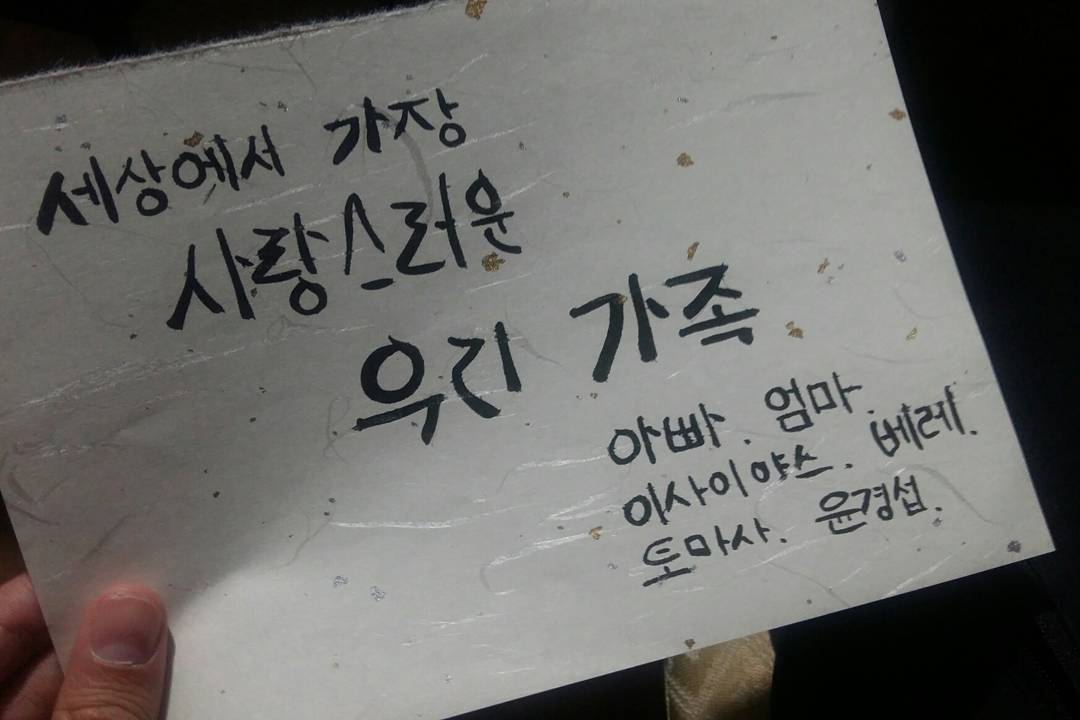 세상에서 가장
사랑스러운
우리 가족
아빠. 엄마.
이사이야스. 베레.
토마사. 윤경섭.